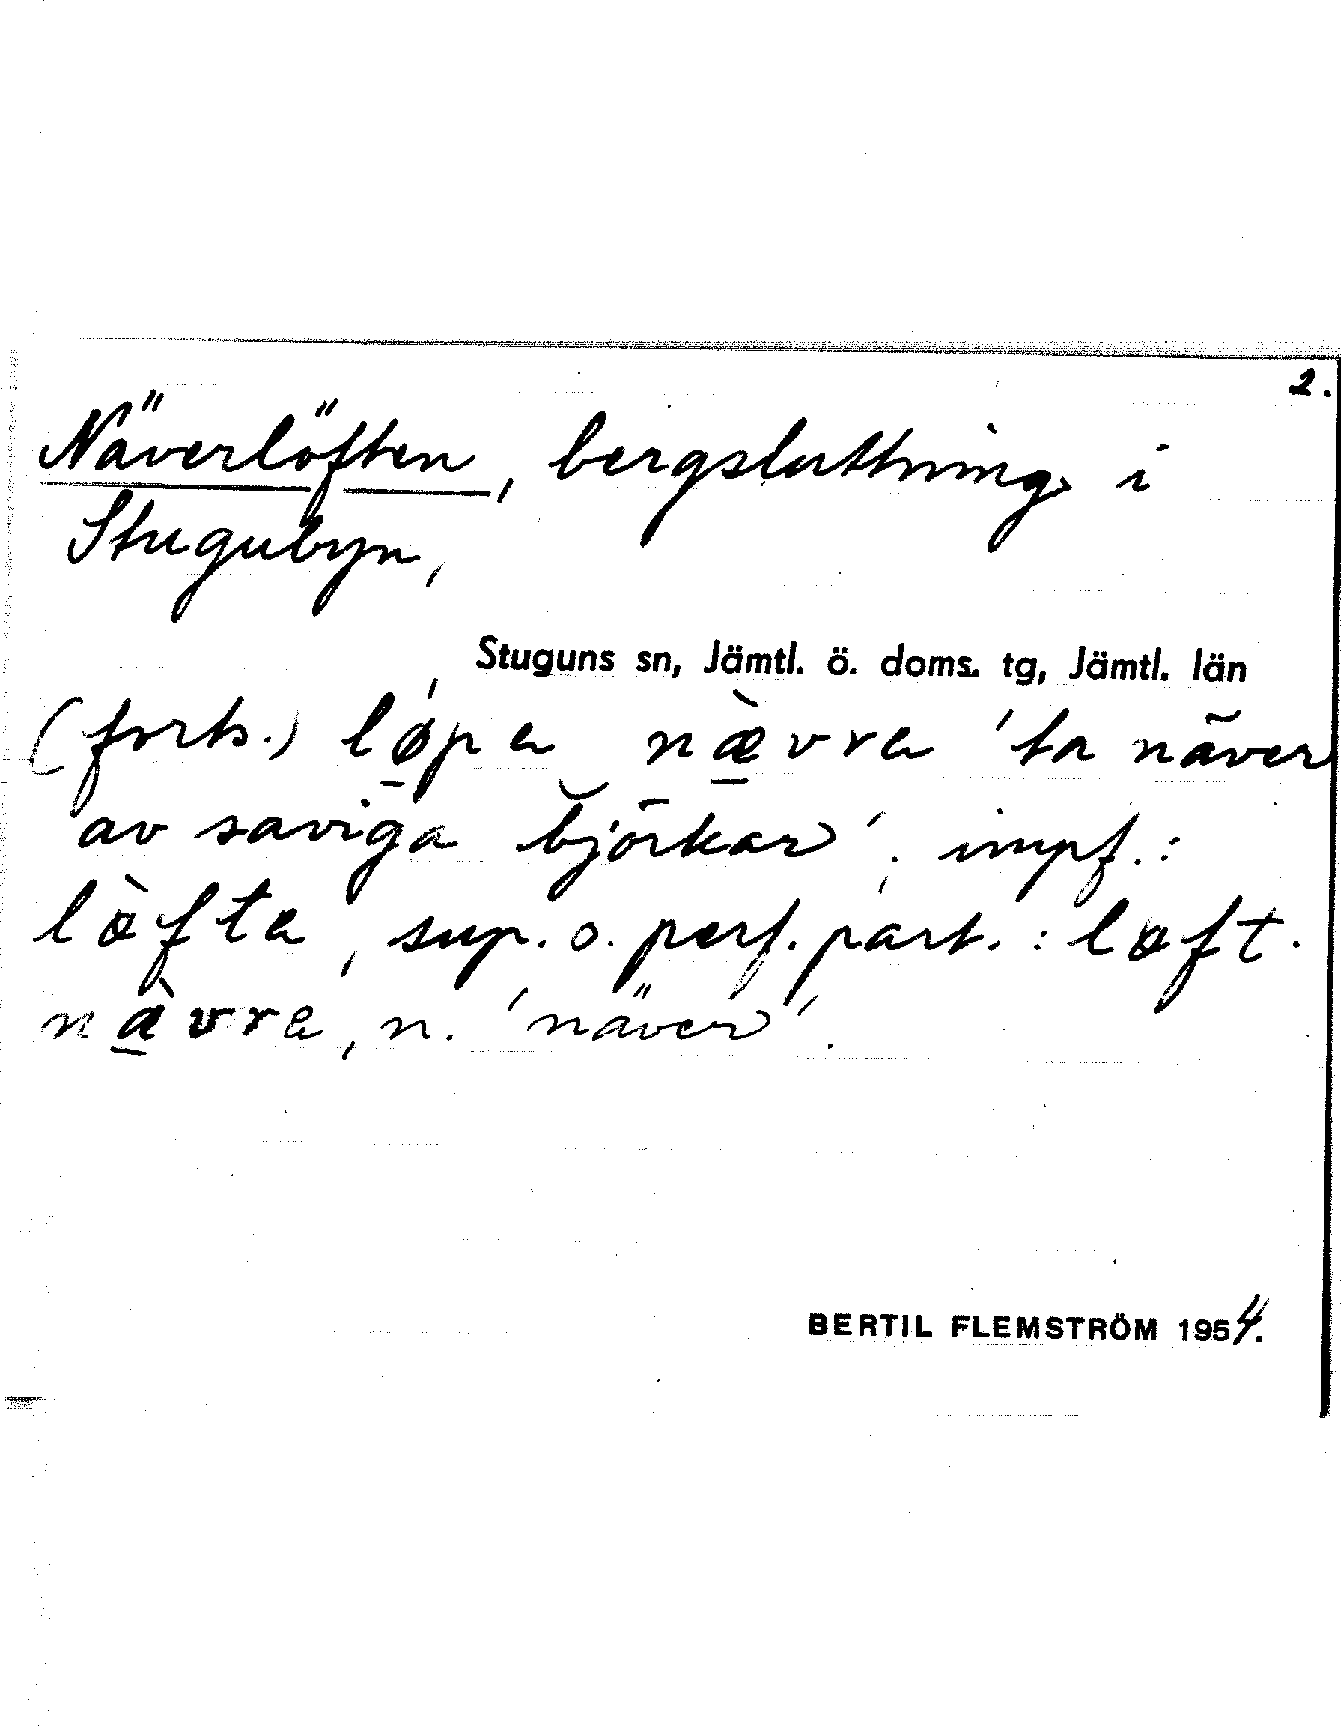 2.
Näverlöften, bergsluttning i
Stugubyn,
Stuguns sn, Jämtl. ö. doms. tg, Jämtl. län
(forts.) lǿ̱pa næ̱̀vra 'ta näver
av saviga björkar'; impf.:
lö̀fta, sup. o. perf. part.: löft.
næ̱̀vra, n. 'näver'.
BERTIL FLEMSTRÖM 1954.